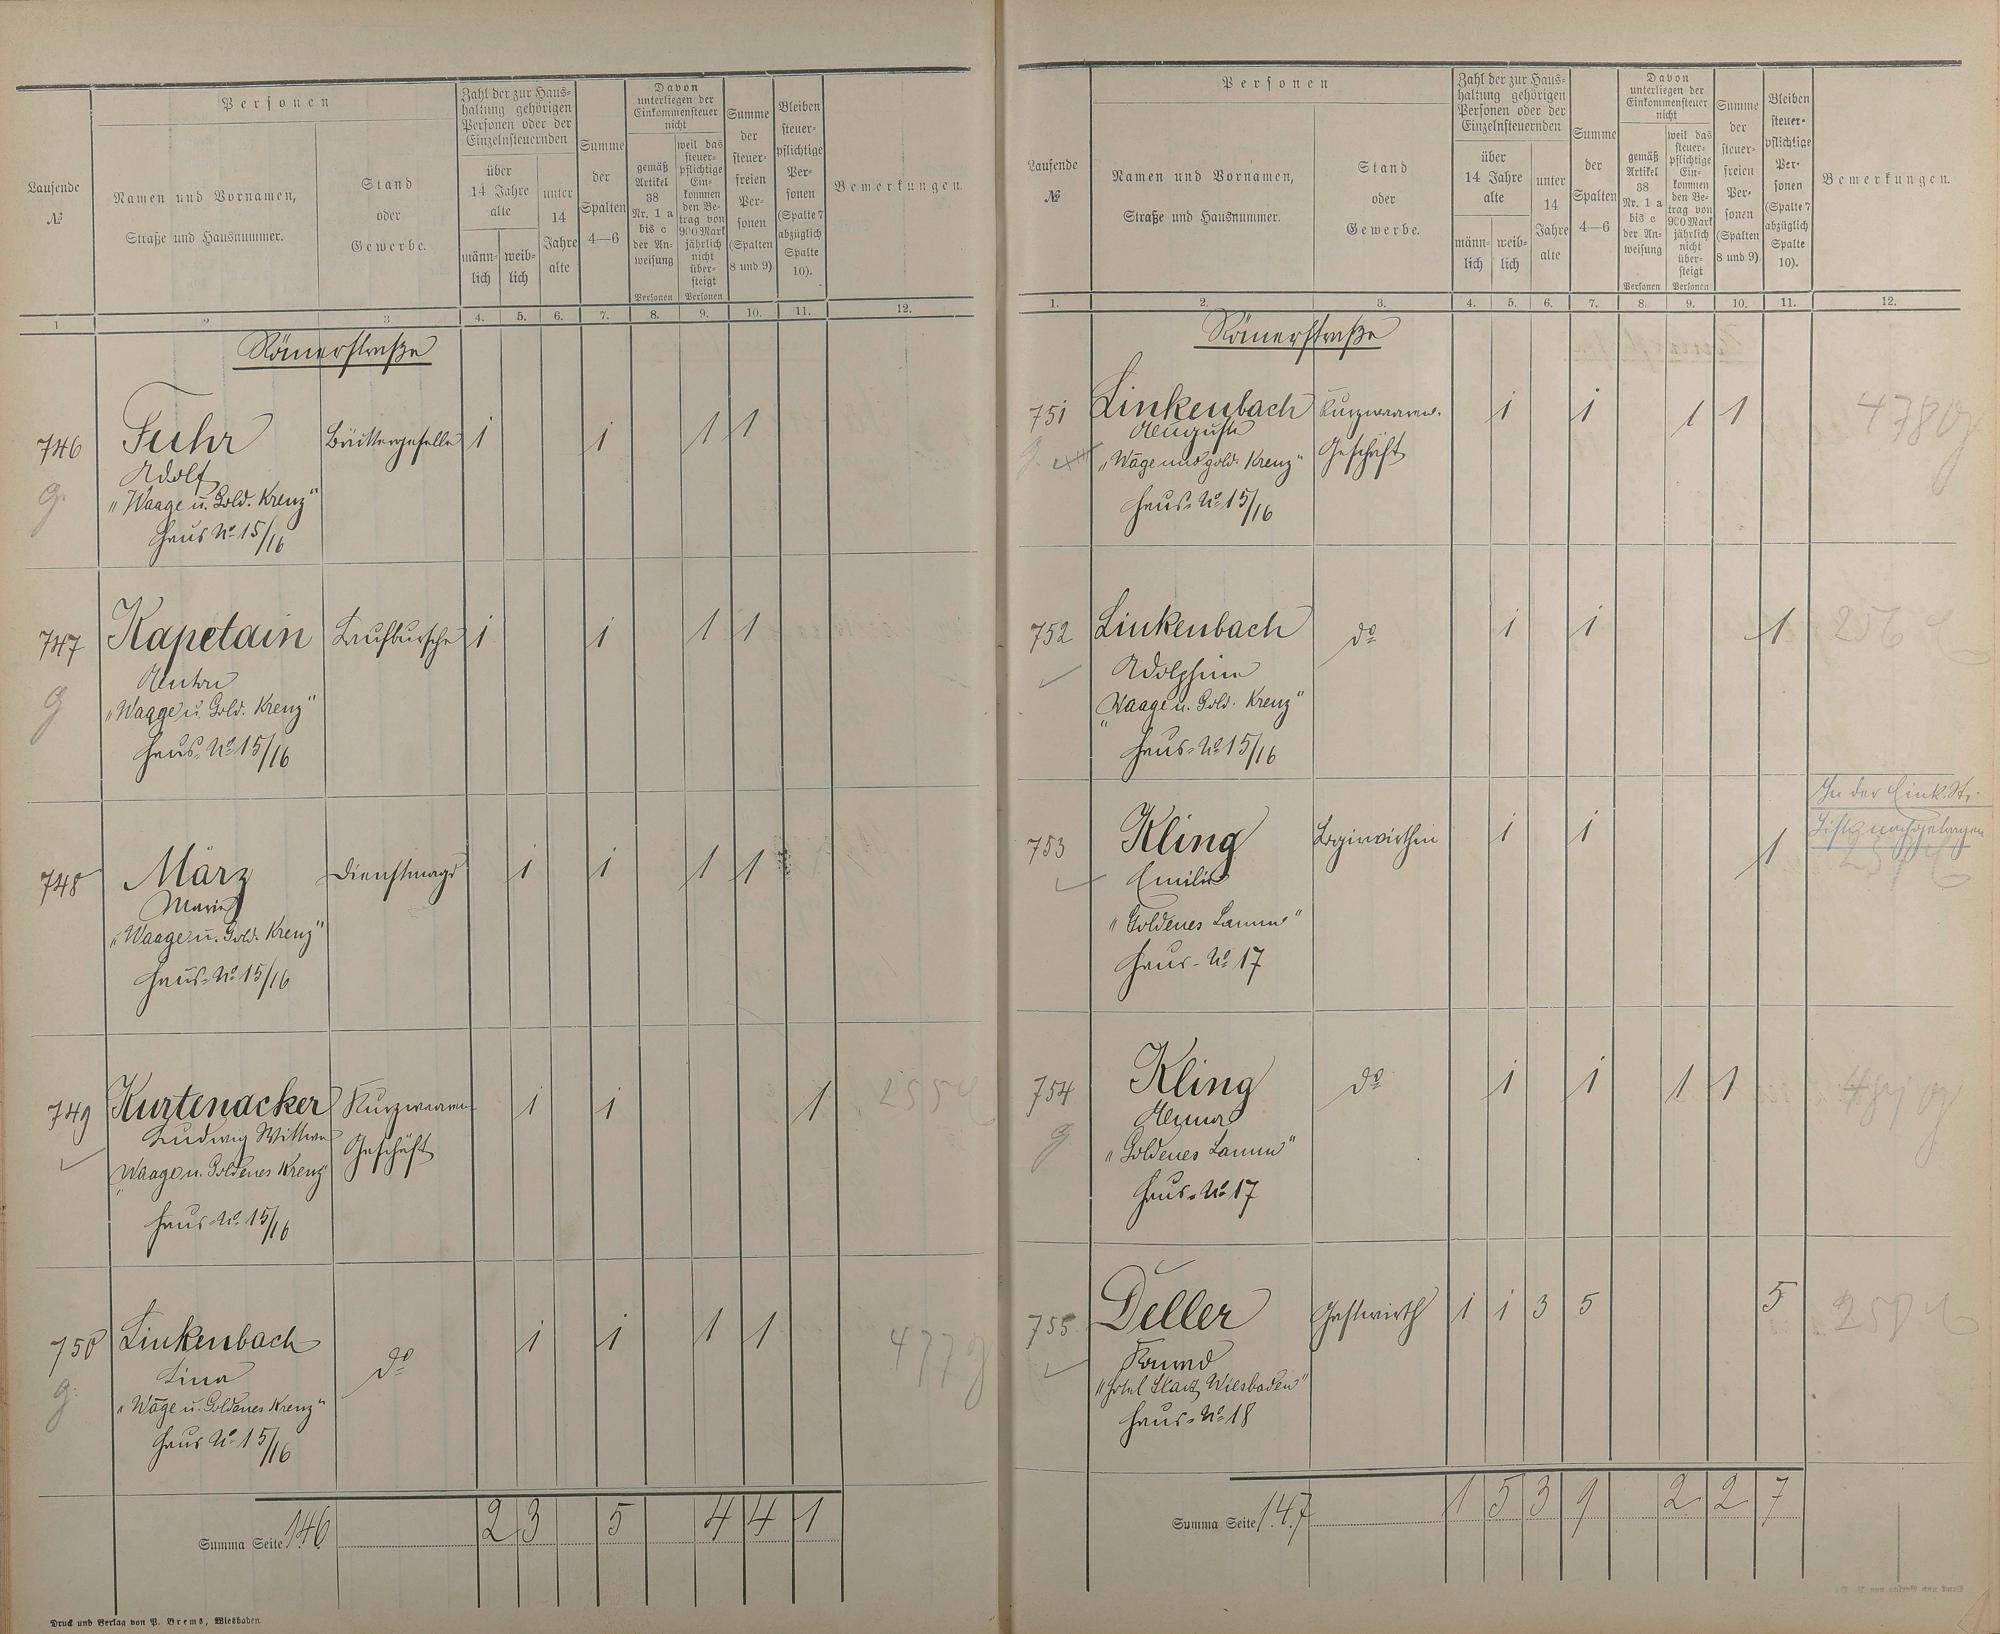 Laufende
№
Personen
Namen und Vornamen,
Straße und Hausnummer.
Stand
oder
Gewerbe.
Zahl der zur Haus-
haltung gehörigen
Personen oder der
Einzelnsteuernden
über
14 Jahre
alte
männ-
lich
weib-
lich
unter
14
Jahre
alte
Summe
der
Spalten
4—6
Davon
unterliegen der
Einkommensteuer
nicht
gemäß
Artikel
38
Nr. 1 a
bis c
der An-
weisung
Personen
weil das
steuer-
pflichtige
Ein-
kommen
den Be-
trag von
900 Mark
jährlich
nicht
über-
steigt
Personen
Summe
der
steuer-
freien
Per-
sonen
(Spalten
8 und 9)
Bleiben
steuer-
pflichtige
Per-
sonen
(Spalte 7
abzüglich
Spalte
10).
Bemerkungen.
1 2. 3. 4. 5. 6. 7. 8. 9. 10. 11. 12.
Römerstraße
746 Fuhr 1 1 1 1
g. Adolf
"Waage u. Gold. Kreuz"
Haus No 15/16
747 Kapetain Laufbursche 1 1 1 1
g Anton
"Waage u. Gold. Kreuz"
Haus-No 15/16
748 März Dienstmagd 1 1 1 1
Marie
"Waage u. Gold. Kreuz"
Haus-No 15/16
749 Kurtenacker Kurzwaaren- 1 1 1 255
Ludwig Wittwe Geschäft
"Waage u. Goldenes Kreuz"
Haus-No 15/16
750 Linkenbach do 1 1 1 1 477 g
g. Lina
"Wage u. Goldenes Kreuz"
Haus No 15/16
Summa Seite 146 2 3 5 4 4 1
Druck und Verlag von P. Brems, Wiesbaden.
Laufende
№
Personen
Namen und Vornamen,
Straße und Hausnummer.
Stand
oder
Gewerbe.
Zahl der zur Haus-
haltung gehörigen
Personen oder der
Einzelnsteuernden
über
14 Jahre
alte
männ-
lich
weib-
lich
unter
14
Jahre
alte
Summe
der
Spalten
4—6
Davon
unterliegen der
Einkommensteuer
nicht
gemäß
Artikel
38
Nr. 1 a
bis c
der An-
weisung
Personen
weil das
steuer-
pflichtige
Ein-
kommen
den Be-
trag von
900 Mark
jährlich
nicht
über-
steigt
Personen
Summe
der
steuer-
freien
Per-
sonen
(Spalten
8 und 9)
Bleiben
steuer-
pflichtige
Per-
sonen
(Spalte 7
abzüglich
Spalte
10).
Bemerkungen.
1. 2. 3. 4. 5. 6. 7. 8. 9. 10. 11. 12.
Römerstraße
751 Linkenbach Kurzwaaren- 1 1 1 1 478 g
g. Auguste Geschäft
"Wage und gold. Kreuz"
Haus-No 15/16
752 Linkenbach do 1 1 1 256
Adolphine
"Waage u. Gold. Kreuz"
Haus-No 15/16
753 Kling Logirwirthin 1 1 1
In der Eink. St.
Liste nachgetragen
257
Emilie
"Goldenes Lamm"
Haus-No 17
754 Kling do 1 1 1 1
g Anna
"Goldenes Lamm"
Haus-No 17
755 Deller Gastwirth 1 1 3 5 5 258
Konrad
"Hotel Stadt Wiesbaden"
Haus-No 18
Summa Seite 147 1 5 3 9 2 2 7